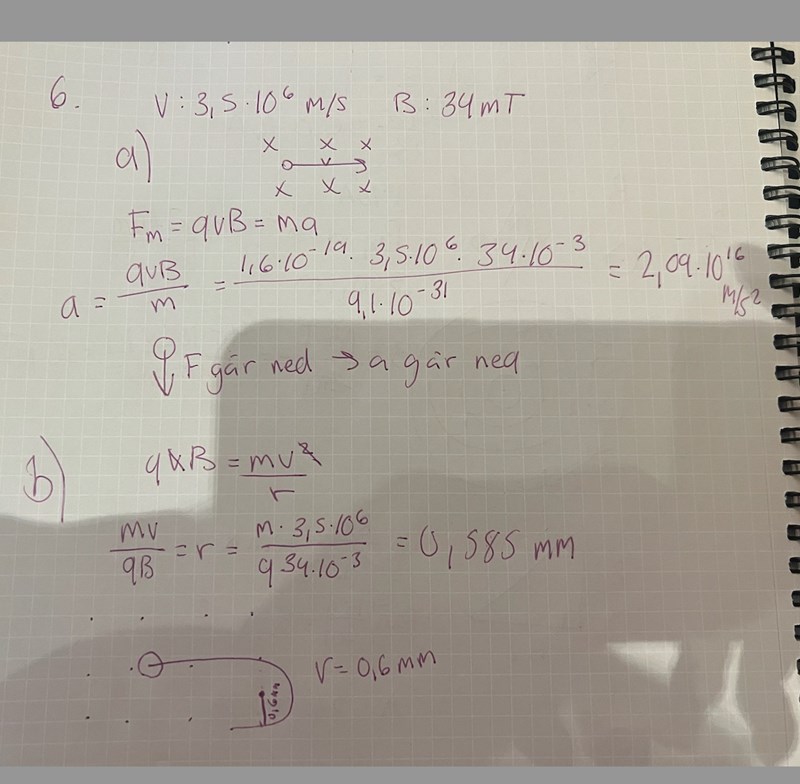 6. V: 3,5·10⁶ m/s B: 34mT
a)
x x x
v
x x x
Fm = qvB = ma
a = qvB/m = 1,6·10⁻¹⁹· 3,5·10⁶· 34·10⁻³ / 9,1·10⁻³¹ = 2,09·10¹⁶ m/s²
F går ned → a går ned
b) qvB = mv²/r
mv/qB = r = m· 3,5·10⁶ / q 34·10⁻³ = 0,585 mm
r = 0,6 mm
0,6mm